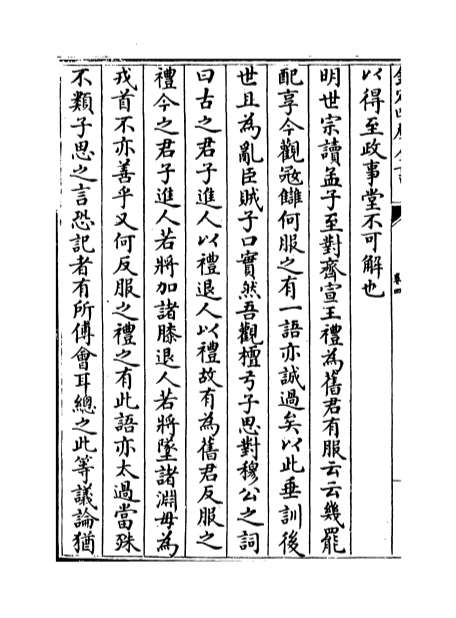 欽定四庫全書
卷四
以得至政事堂不可解也
明世宗讀孟子至對齊宣王禮為舊君有服云云幾罷
配享今觀㓂讎何服之有一語亦誠過矣以此垂訓後
世且為亂臣賊子口實然吾觀檀弓子思對穆公之詞
曰古之君子進人以禮退人以禮故有為舊君反服之
禮今之君子進人若將加諸膝退人若將墜諸淵毋為
戎首不亦善乎又何反服之禮之有此語亦太過當殊
不類子思之言恐記者有所傅會耳總之此等議論猶